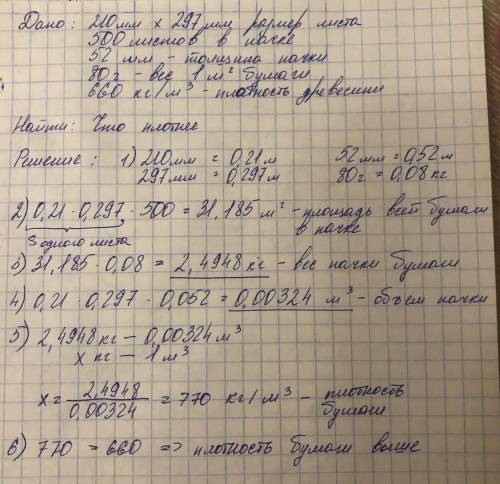 Дано: 210 мм x 297 мм размер листа
500 листов в пачке
52 мм - толщина пачки
80 г - вес 1 м² бумаги
660 кг/м³ - плотность древесины
Найти: Что плотнее
Решение: 1) 210 мм = 0,21 м 52 мм = 0,52 м
297 мм = 0,297 м 80 г = 0,08 кг
2) 0,21 · 0,297 · 500 = 31,185 м² - площадь всей бумаги
S одного листа в пачке
3) 31,185 · 0,08 = 2,4948 кг - вес пачки бумаги
4) 0,21 · 0,297 · 0,052 = 0,00324 м³ - объем пачки
5) 2,4948 кг - 0,00324 м³
x кг - 1 м³
x = 2,4948 / 0,00324 = 770 кг/м³ - плотность
бумаги
6) 770 > 660 => плотность бумаги выше